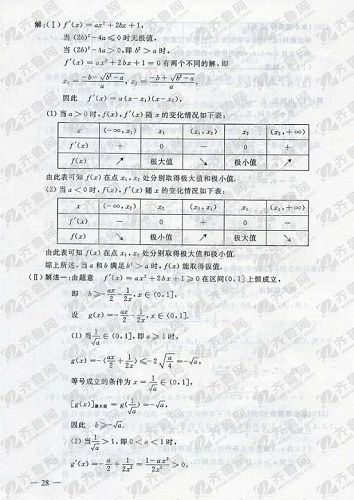 解:(Ⅰ) f′(x) = ax² + 2bx + 1,
当 (2b)² - 4a ⩽ 0 时无极值,
当 (2b)² - 4a > 0, 即 b² > a 时,
f′(x) = ax² + 2bx + 1 = 0 有两个不同的解, 即
x₁ = (-b - √(b² - a))/a, x₂ = (-b + √(b² - a))/a,
因此 f′(x) = a(x - x₁)(x - x₂),
(1) 当 a > 0 时, f(x), f′(x) 随 x 的变化情况如下表:
x (-∞, x₁) x₁ (x₁, x₂) x₂ (x₂, +∞)
f′(x) + 0 - 0 +
f(x) ↗ 极大值 ↘ 极小值 ↗
由此表可知 f(x) 在点 x₁, x₂ 处分别取得极大值和极小值.
(2) 当 a < 0 时, f(x), f′(x) 随 x 的变化情况如下表:
x (-∞, x₂) x₂ (x₂, x₁) x₁ (x₁, +∞)
f′(x) - 0 + 0 -
f(x) ↘ 极小值 ↗ 极大值 ↘
由此表可知 f(x) 在点 x₁, x₂ 处分别取得极大值和极小值.
综上所述, 当 a 和 b 满足 b² > a 时, f(x) 能取得极值.
(Ⅱ) 解法一: 由题意 f′(x) = ax² + 2bx + 1 ⩾ 0 在区间 (0,1] 上恒成立,
即 b ⩾ -ax/2 - 1/(2x), x ∈ (0,1],
设 g(x) = -ax/2 - 1/(2x), x ∈ (0,1],
(1) 当 1/√a ∈ (0,1], 即 a ⩾ 1 时,
g(x) = -(ax/2 + 1/(2x)) ⩽ -2√(a/4) = -√a,
等号成立的条件为 x = 1/√a ∈ (0,1],
[g(x)]最大值 = g(1/√a) = -√a,
因此 b ⩾ -√a.
(2) 当 1/√a > 1, 即 0 < a < 1 时,
g′(x) = -a/2 + 1/(2x²) = (1 - ax²)/(2x²) > 0,
— 28 —